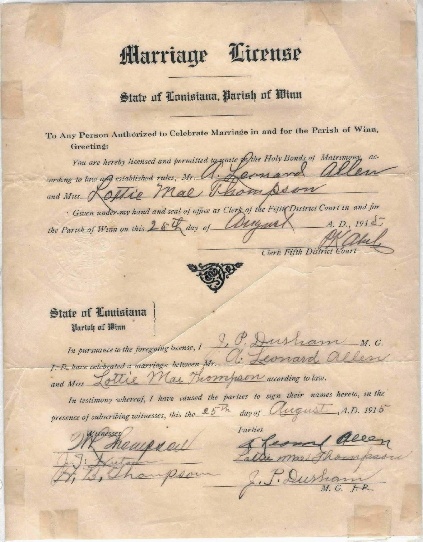 Marriage License
State of Louisiana, Parish of Winn
To Any Person Authorized to Celebrate Marriage in and for the Parish of Winn,
Greeting:
You are hereby licensed and permitted to unite in the Holy Bonds of Matrimony, ac-
cording to law and established rules, Mr. A. Leonard Allen
and Miss Lottie Mae Thompson
Given under my hand and seal of office as Clerk of the Fifth District Court in and for
the Parish of Winn on this 25th day of August A. D., 1915
Clerk Fifth District Court
State of Louisiana
Parish of Winn
In pursuance to the foregoing license, I J. P. Durham M. G.
J. P. have celebrated a marriage between Mr. A. Leonard Allen
and Miss Lottie Mae Thompson according to law.
In testimony whereof, I have caused the parties to sign their names hereto, in the
presence of subscribing witnesses, this the 25th day of August A. D. 1915
Witnesses Parties
Thompson A Leonard Allen
Lottie Mae Thompson
H. B. Thompson J. P. Durham
M. G. J. P.